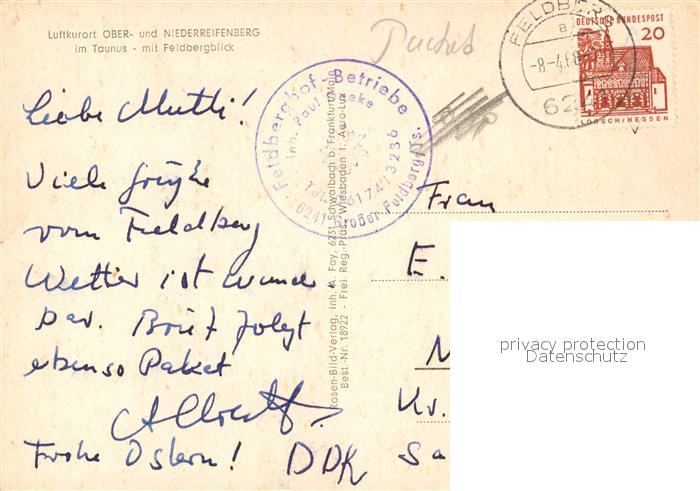 Luftkurort OBER- und NIEDERREIFENBERG
im Taunus - mit Feldbergblick
FELDBERG
a
-8.-4.68
624
DEUTSCHE BUNDESPOST
20
LORSCH/HESSEN
Feldberghof-Betriebe
Inh. Paul
6241 Großer Feldberg/Ts.
Liebe Mutti!
Viele Grüße
vom Feldberg
Wetter ist wunder-
bar. Brief folgt
ebenso Paket
Albrecht
Frohe Ostern!
Rosen-Bild-Verlag, Inh. A. Fay, 6231 Schwalbach b. Frankfurt/Main
Best.-Nr. 18922 - Frei. Reg.-Präs. Wiesbaden f. Aero-Lux
Frau
E.
Kr.
DDR Sa
privacy protection
Datenschutz